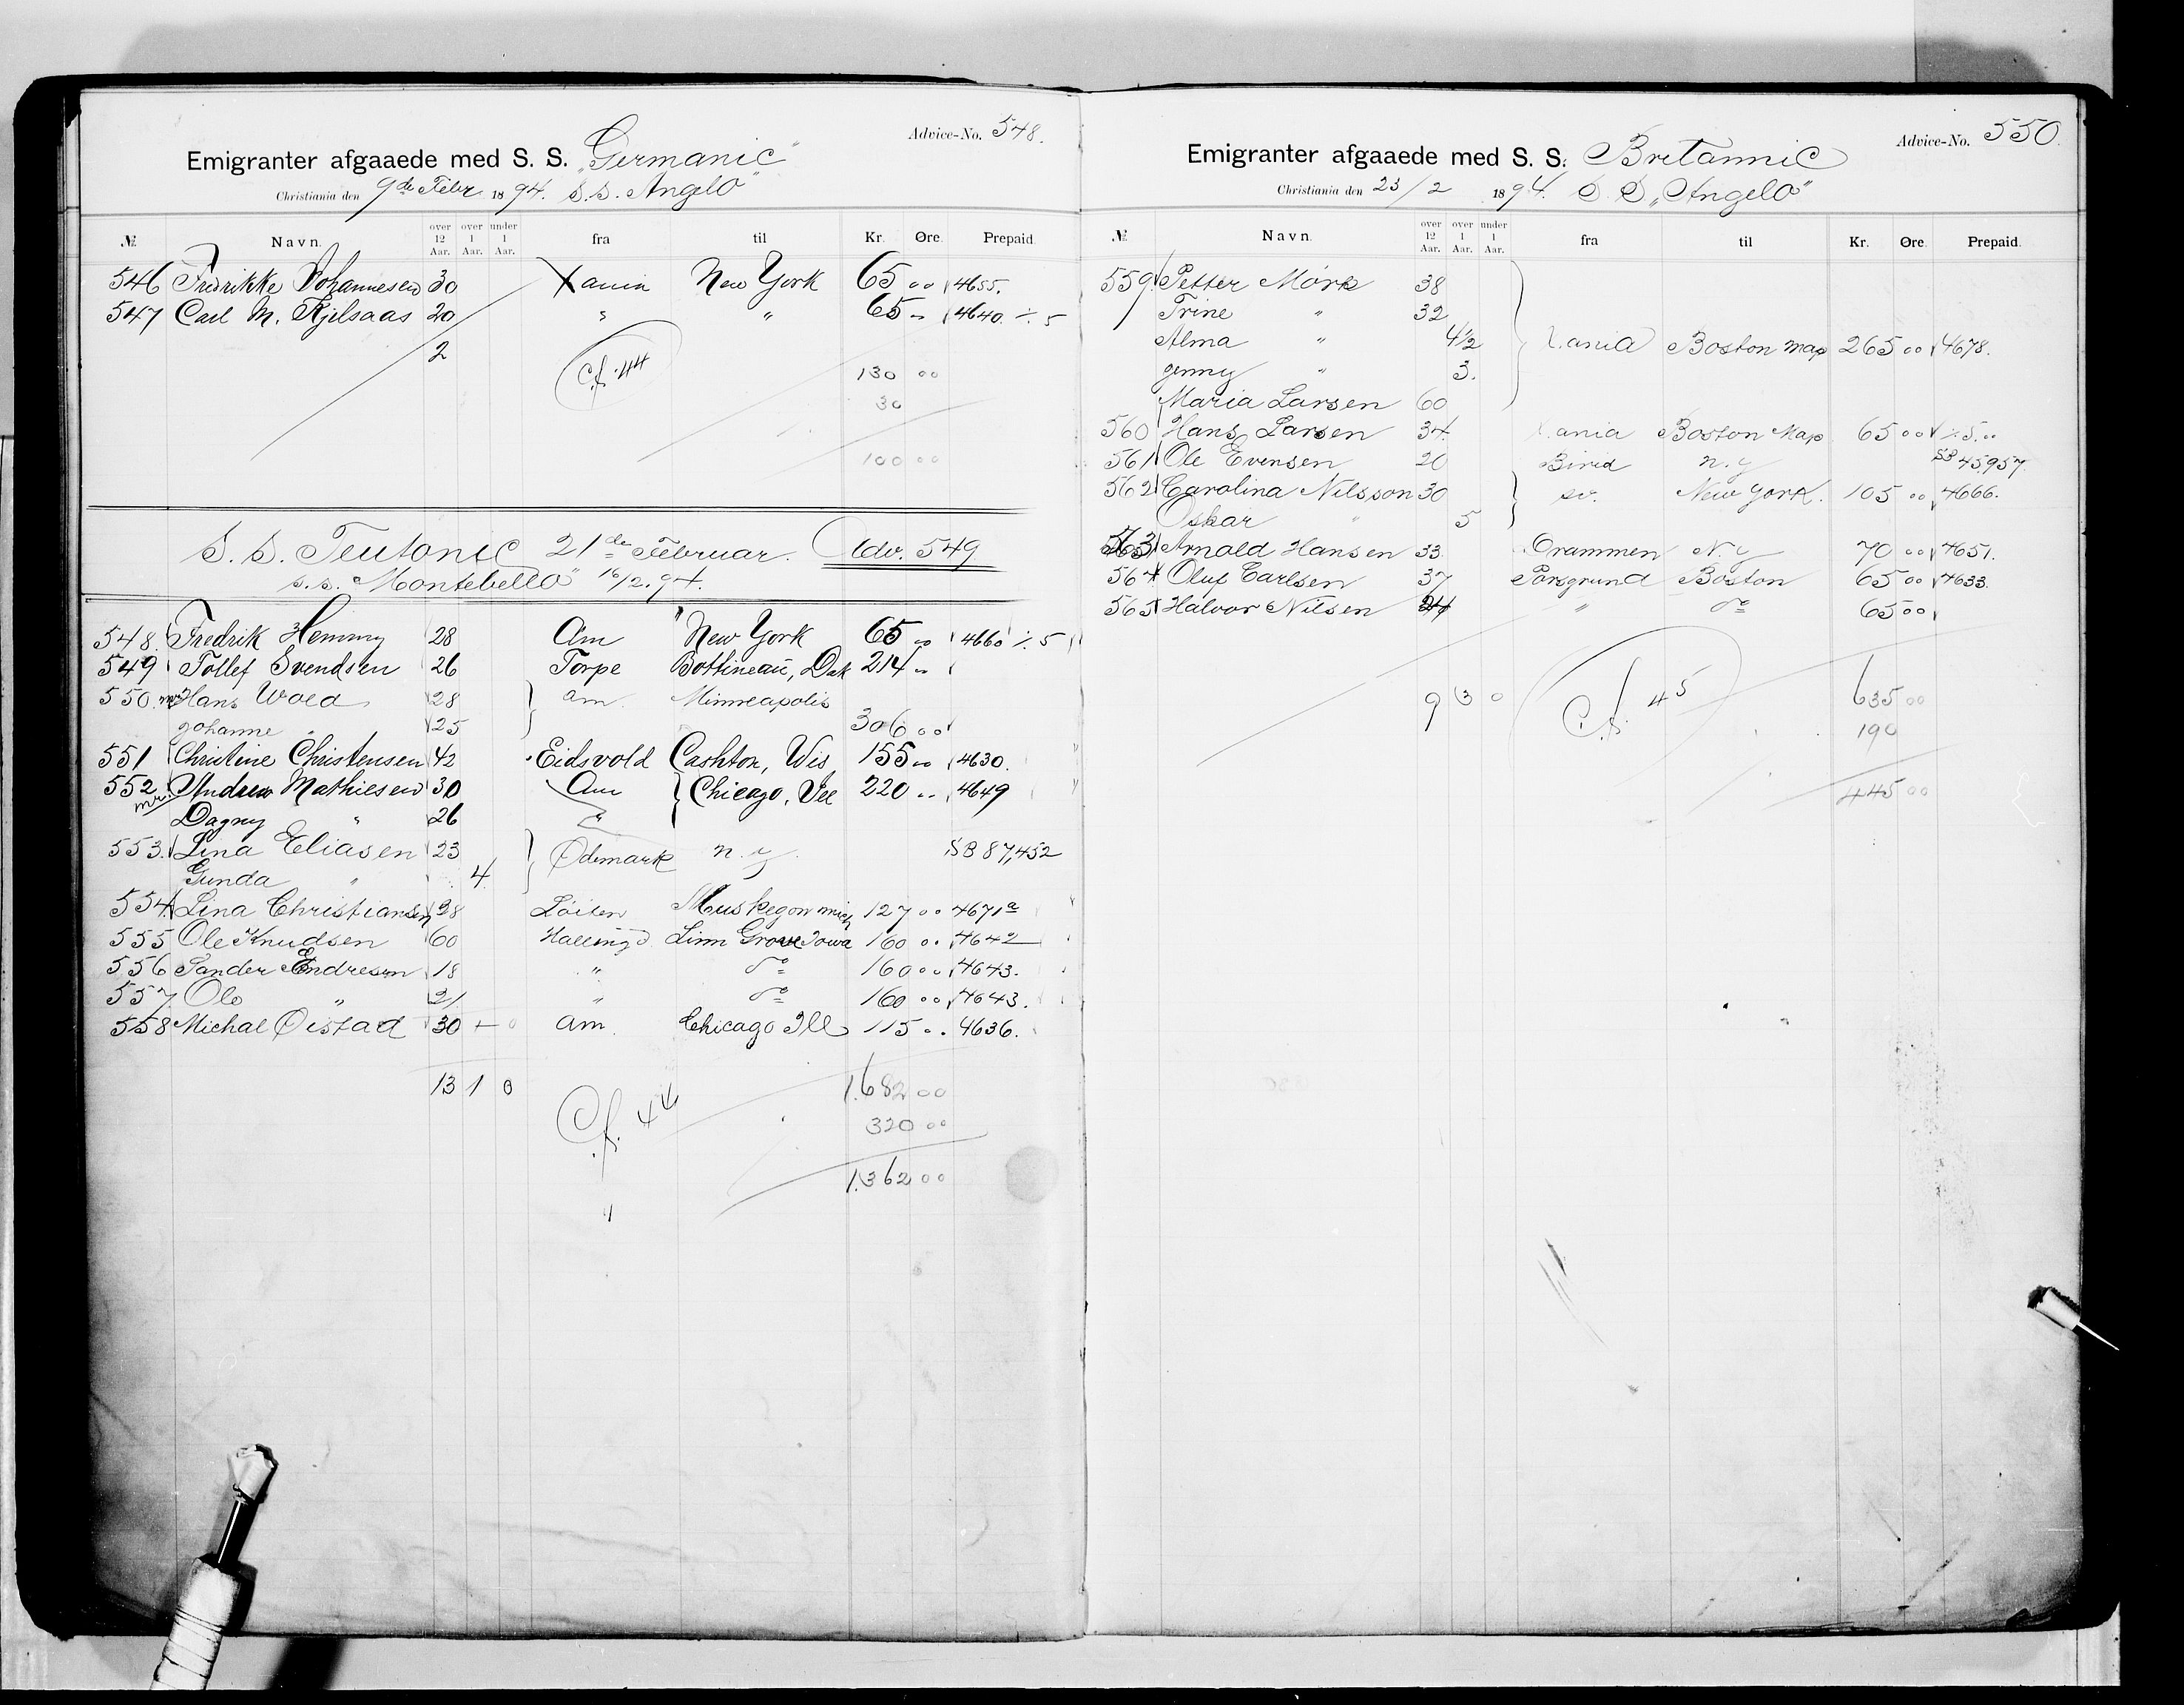 Advice-No. 548.
Emigranter afgaaede med S. S. „Germanic"
Christiania den 9de Febr 1894. S.S. Angelo"
№ Navn. over 12 Aar. over 1 Aar. under 1 Aar. fra til Kr. Øre. Prepaid.
546 Fredrikke Johannesen 30 Xania New York 65 00 4655.
547 Carl M. Kjelsaas 20 " " 65 - 4640. ./. 5
2 Cf. 44
130 00
30
100 00
S. S. Teutonic 21de Februar. Adv. 549
S.S. Montebello" 16/2.94.
548. Fredrik Hemmy 28 Am New York 65 00 4660 ./. 5
549 Tollef Svendsen 26 Torpe Bottineau, Dak 214 -
550. Hans Wold 28 am. Minneapolis
Johanne " 25 306 00
551 Christine Christensen 42 Eidsvold Cashton, Wis 155 00 4630.
552 mr. Andrew Mathiesen 30 Am Chicago, Ill 220 .. 4649
Dagny " 26 "
553. Lina Eliasen 23 Ødemark n. y. SB 87,452
Gunda " 4
554 Lina Christiansen 28 Löiten Muskegon mich 127 00 4671a
555 Ole Knudsen 60 Hallingd. Linn Grove Iowa 160 00 4642
556 Sander Endresen 18 " do 160 00 4643.
557 Ole " 21 " do 160 00 4643.
558 Michal Öistad 30 am. Chicago Ill 115 .. 4636.
13 1 0 Cf. 44 1.682 00
320 00
1.362 00
Advice-No. 550.
Emigranter afgaaede med S. S. Britannic
Christiania den 23/2 1894. S S „Angelo"
№ Navn. over 12 Aar. over 1 Aar. under 1 Aar. fra til Kr. Øre. Prepaid.
559 Petter Mörk 38
Trine " 32
Alma " 4½ Xania Boston Map 265 00 4678.
Jenny " 3.
Maria Larsen 60
560 Hans Larsen 34 Xania Boston Map 65 00 ./. 5..
561 Ole Evensen 20 Birid n. y SB 45,957.
562 Carolina Nilsson 30 sv. New York. 105 00 4666.
Oskar " 5
563 Arnold Hansen 33 Drammen N. y 70 00 4651.
564 Oluf Carlsen 37 Porsgrund Boston 65 00 4633.
565 Halvor Nilsen 24 " do 65 00
9 3 0 Cf. 45 635 00
190
445 00